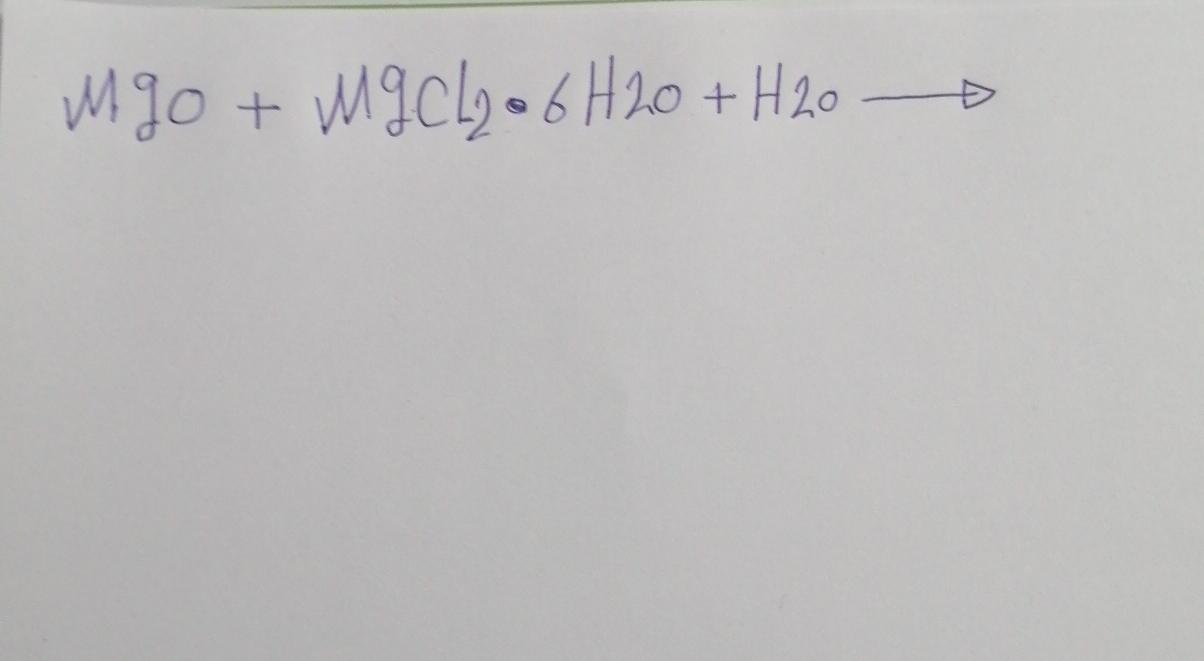 MgO + MgCl2 • 6H2O + H2O →